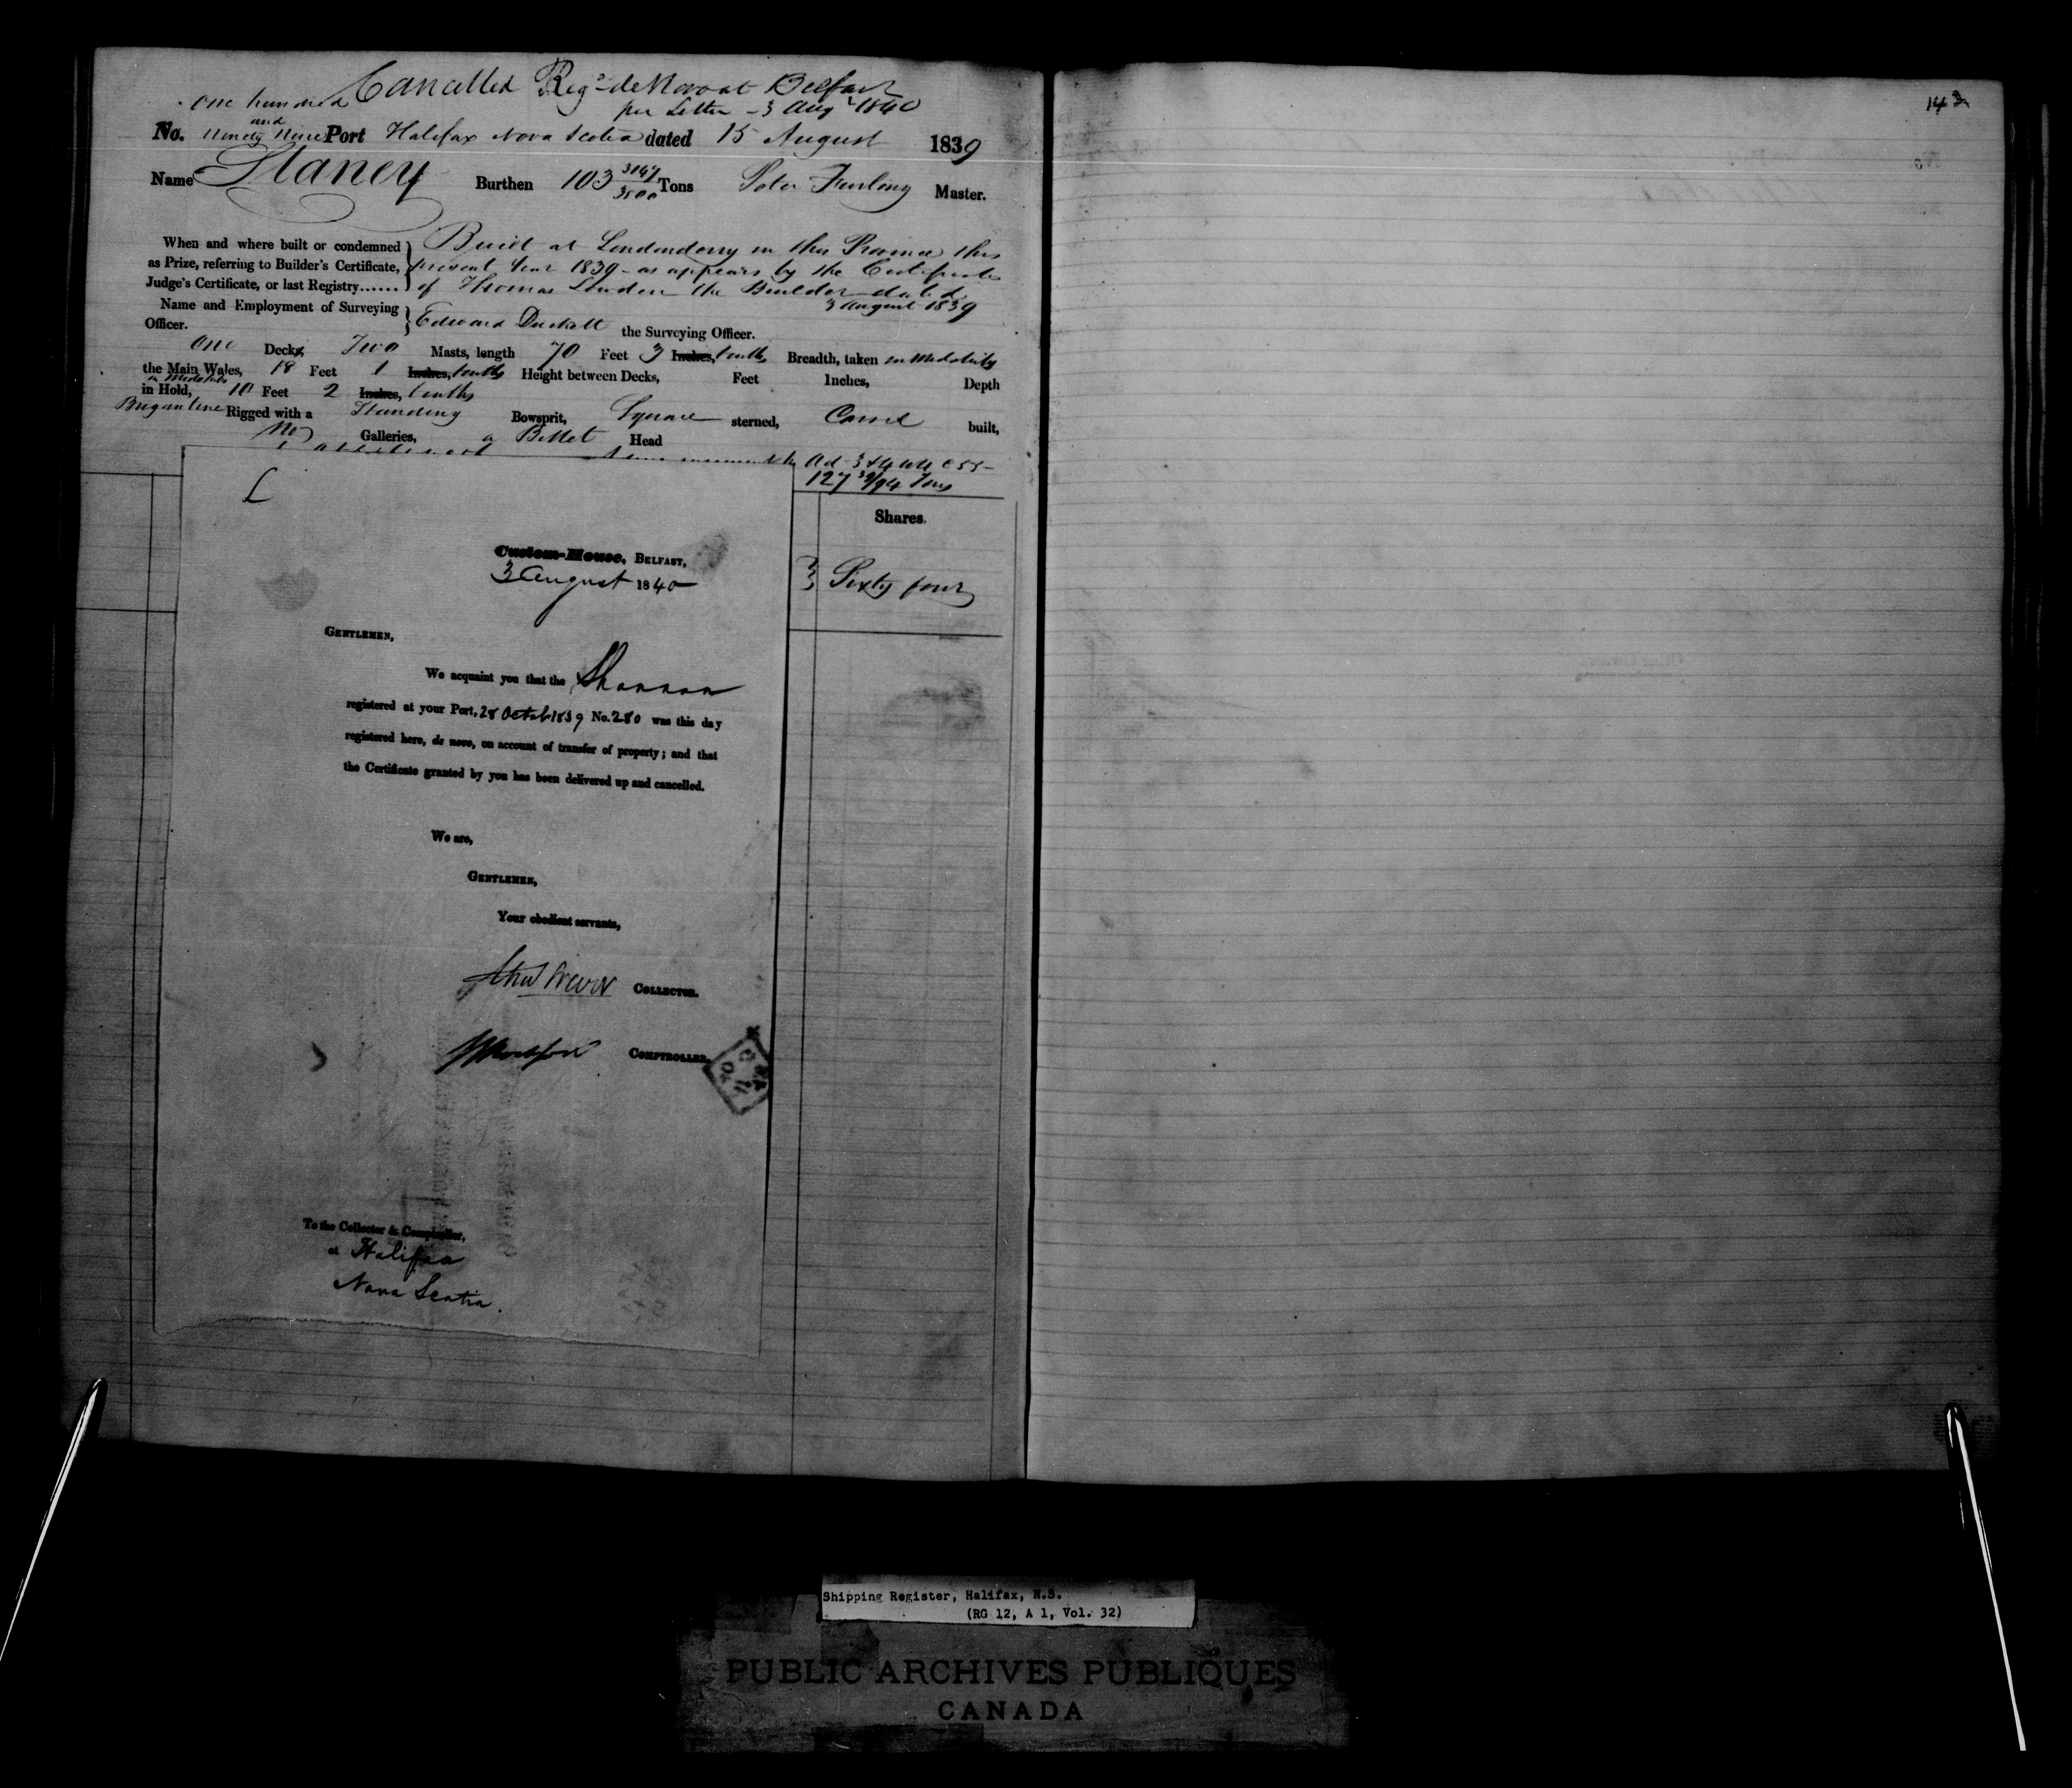 Cancelled Reg.d de Novo at Belfast
per Letter - 3 Aug.t 1840
No. One hundred and Ninety Nine Port Halifax Nova Scotia dated 15 August 1839
Name Slaney Burthen 103 3147/3500 Tons Peter Furlong Master.
When and where built or condemned as Prize, referring to Builder's Certificate, Judge's Certificate, or last Registry......
Built at Londonderry in this Province this
present Year 1839 - as appears by the Certificate
of Thomas Loudon the Builder dated
3 August 1839
Name and Employment of Surveying Officer.
Edward Duckett the Surveying Officer.
One Decks, Two Masts, length 70 Feet 3 Inches, tenths Breadth, taken in Midships
the Main Wales, 18 Feet 1 Inches, tenths Height between Decks, Feet Inches, Depth
in Midships
in Hold, 10 Feet 2 Inches, tenths
Brigantine Rigged with a Standing Bowsprit, Square sterned, Carvel built,
No Galleries, a Billet Head
127 39/94 Tons
Shares.
Sixty four
Custom-House, Belfast,
3 August 1840
Gentlemen,
We acquaint you that the Shannon
registered at your Port, 28 Octob 1839 No. 280 was this day
registered here, de novo, on account of transfer of property; and that
the Certificate granted by you has been delivered up and cancelled.
We are,
Gentlemen,
Your obedient servants,
Collector.
Comptroller.
To the Collector & Comptroller,
at Halifax
Nova Scotia.
142
Shipping Register, Halifax, N.S.
(RG 12, A 1, Vol. 32)
PUBLIC ARCHIVES PUBLIQUES
CANADA